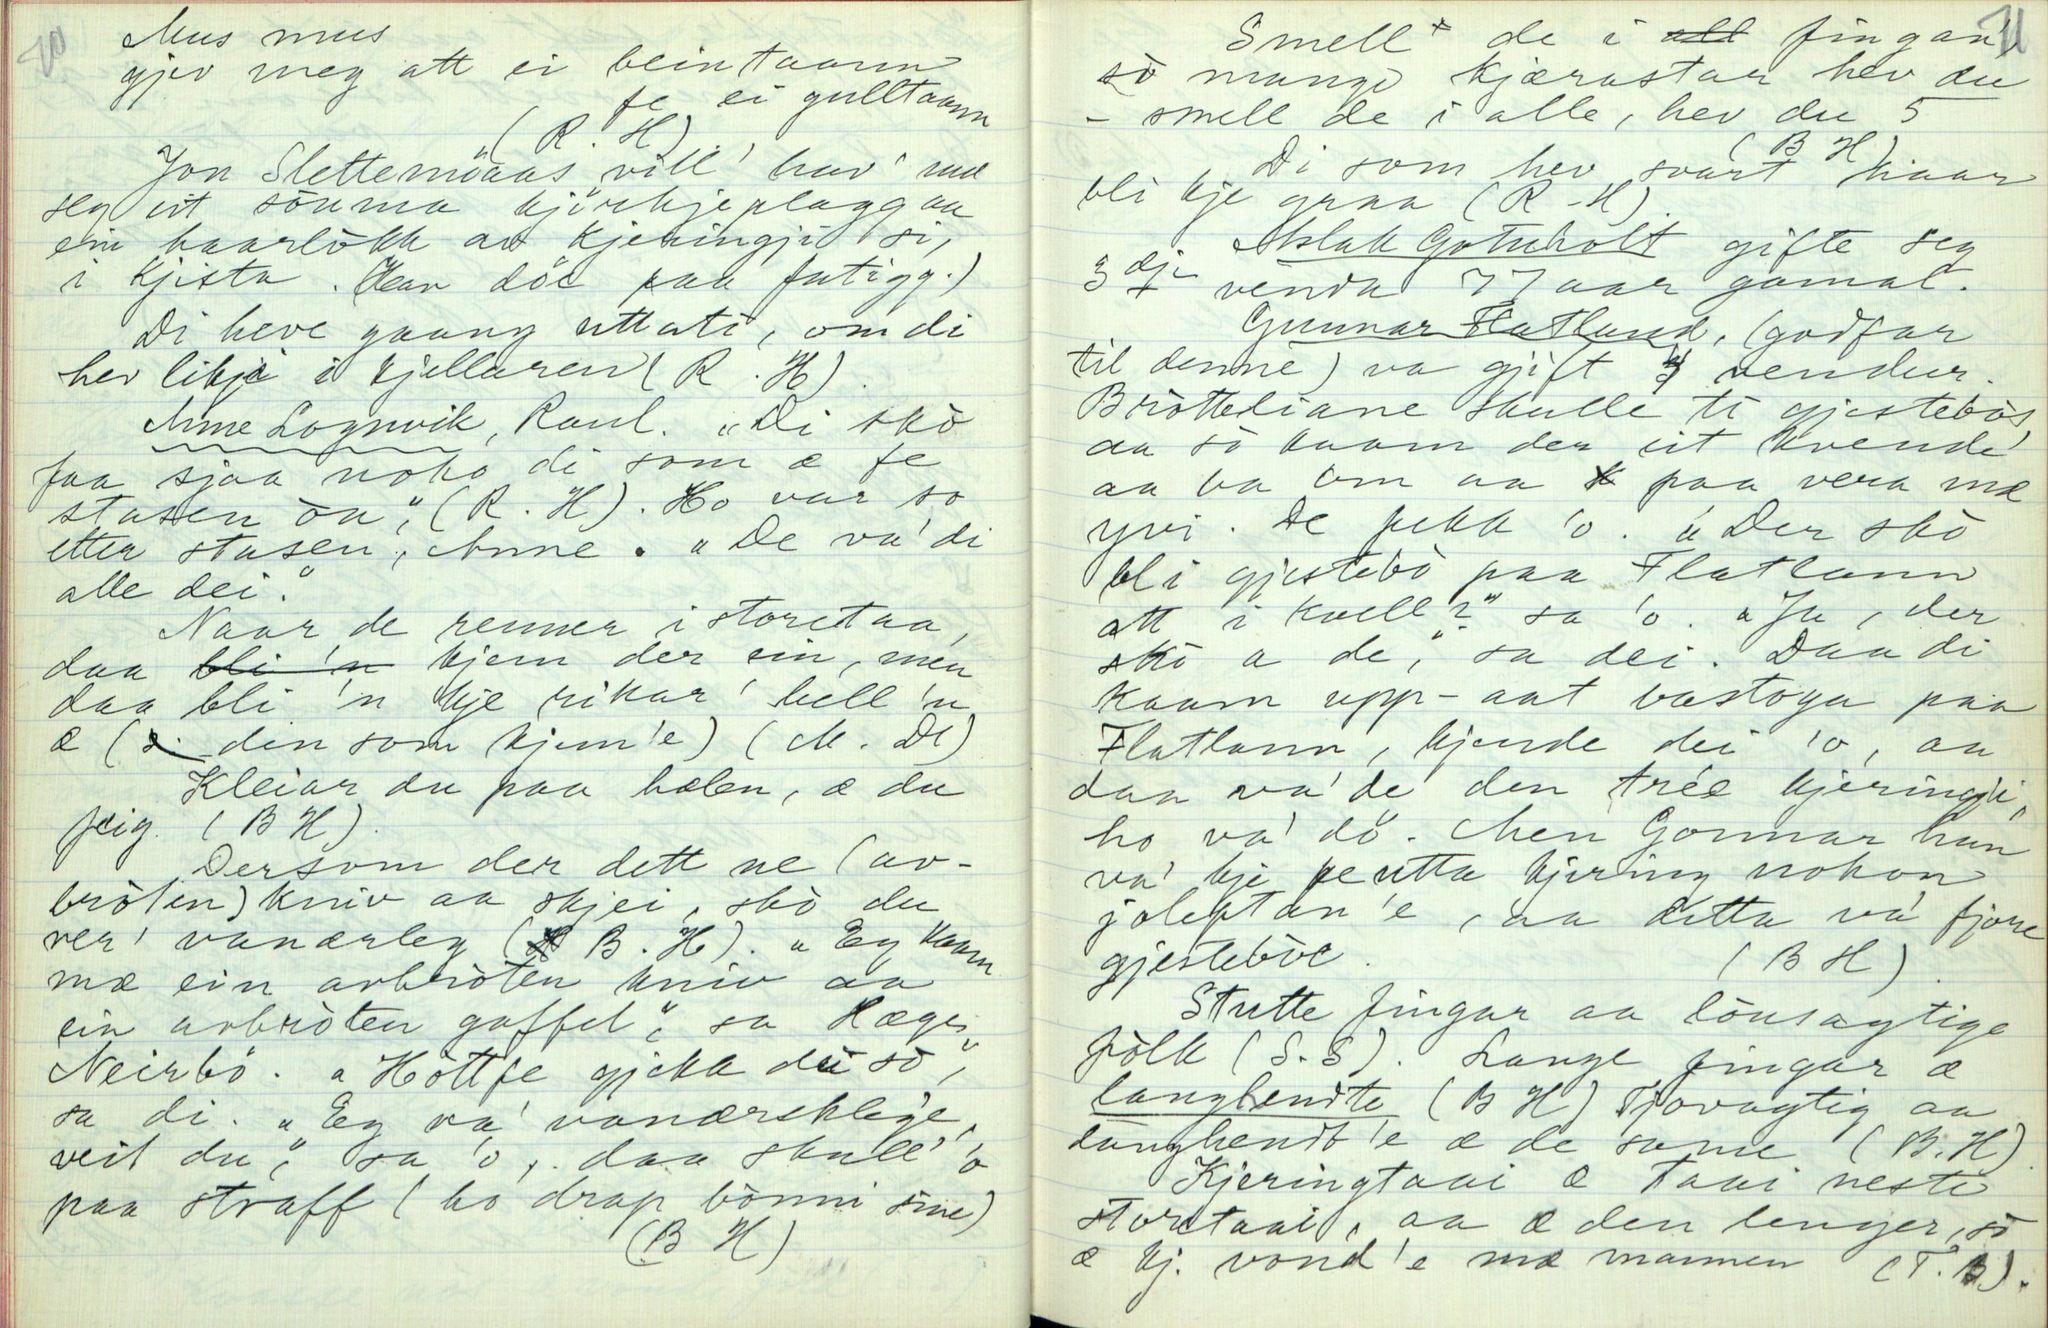 70
Mus mus
gjev meg att ei beintaann
fe ei gulltaann
(R. H)
Jon Slettemöaas vill' hav' mæ
seg ut sömma kjörkjeplaggaa
ein haarlòkk av kjeringji si,
i kjista. (Han döe paa fatigg.)
Di heve gaang uttati, om di
hev likji i kjellaren (R. H).
Anne Lognvik, Raul. "Di skò
faa sjaa noko di som æ fe
stasen òn", (R. H). Ho var so
etter stasen, Anne. "De va' di
alle dei."
Naar de renner i storetaa,
daa bli 'n kjem der ein, men
daa bli 'n kje rikar' hell 'n
æ (s. den som kjem 'e) (M. Dl)
Kleiar du paa hælen, æ du
feig. (B H).
Dersom der dett ne (av-
bròten) kniv aa skjei, skò du
ver' vanærleg (B. H). "Eg kaam
mæ ein avbròten kniv aa
ein avbròten gaffel", sa Hæge
Neirbö. "Hòtt fe gjekk du sò",
sa di. "Eg va' vanærsklege,
veit du", sa 'o, daa skull' 'o
paa straff (ho drap bònni sine)
(B H)
71
Smell de i att fingan',
sò mange kjærastar hev du
- smell de i alle, hev du 5
(B H)
Di som hev svart haar
bli kje graa (R. H).
Aslak Gotuholt gifte seg
3 dje venda 77 aar gamal.
Gunnar Flatland, (godfar
til denne) va gjift 4 vendur.
Bròtteliane skulle ti gjestebòs
aa sò kaam der eit kvende
aa ba om aa paa vera mæ
yvi. De fekk 'o. "Der skò
bli gjestebò paa Flatlann
att i kvell?" sa 'o. "Ja, der
skò a de," sa dei. Daa di
kaam upp-aat bastoga paa
Flatlann, kjende dei 'o, aa
daa va' de den trée kjeringji,
ho va' dö. Men Gonnar han
va' kje fe utta kjering nokon
joleftan 'e, aa detta va' fjore
gjestebòe. (B H).
Stutte fingar aa lònsagtige
fòlk (S. S). Lange fingar æ
langhendte (B H) Tjovagtig aa
langhendt 'e æ de same (B. H)
Kjeringtaai æ taai neste
storetaai, aa æ den lenger, sò
æ kj. vond 'e mæ mannen (T. B).